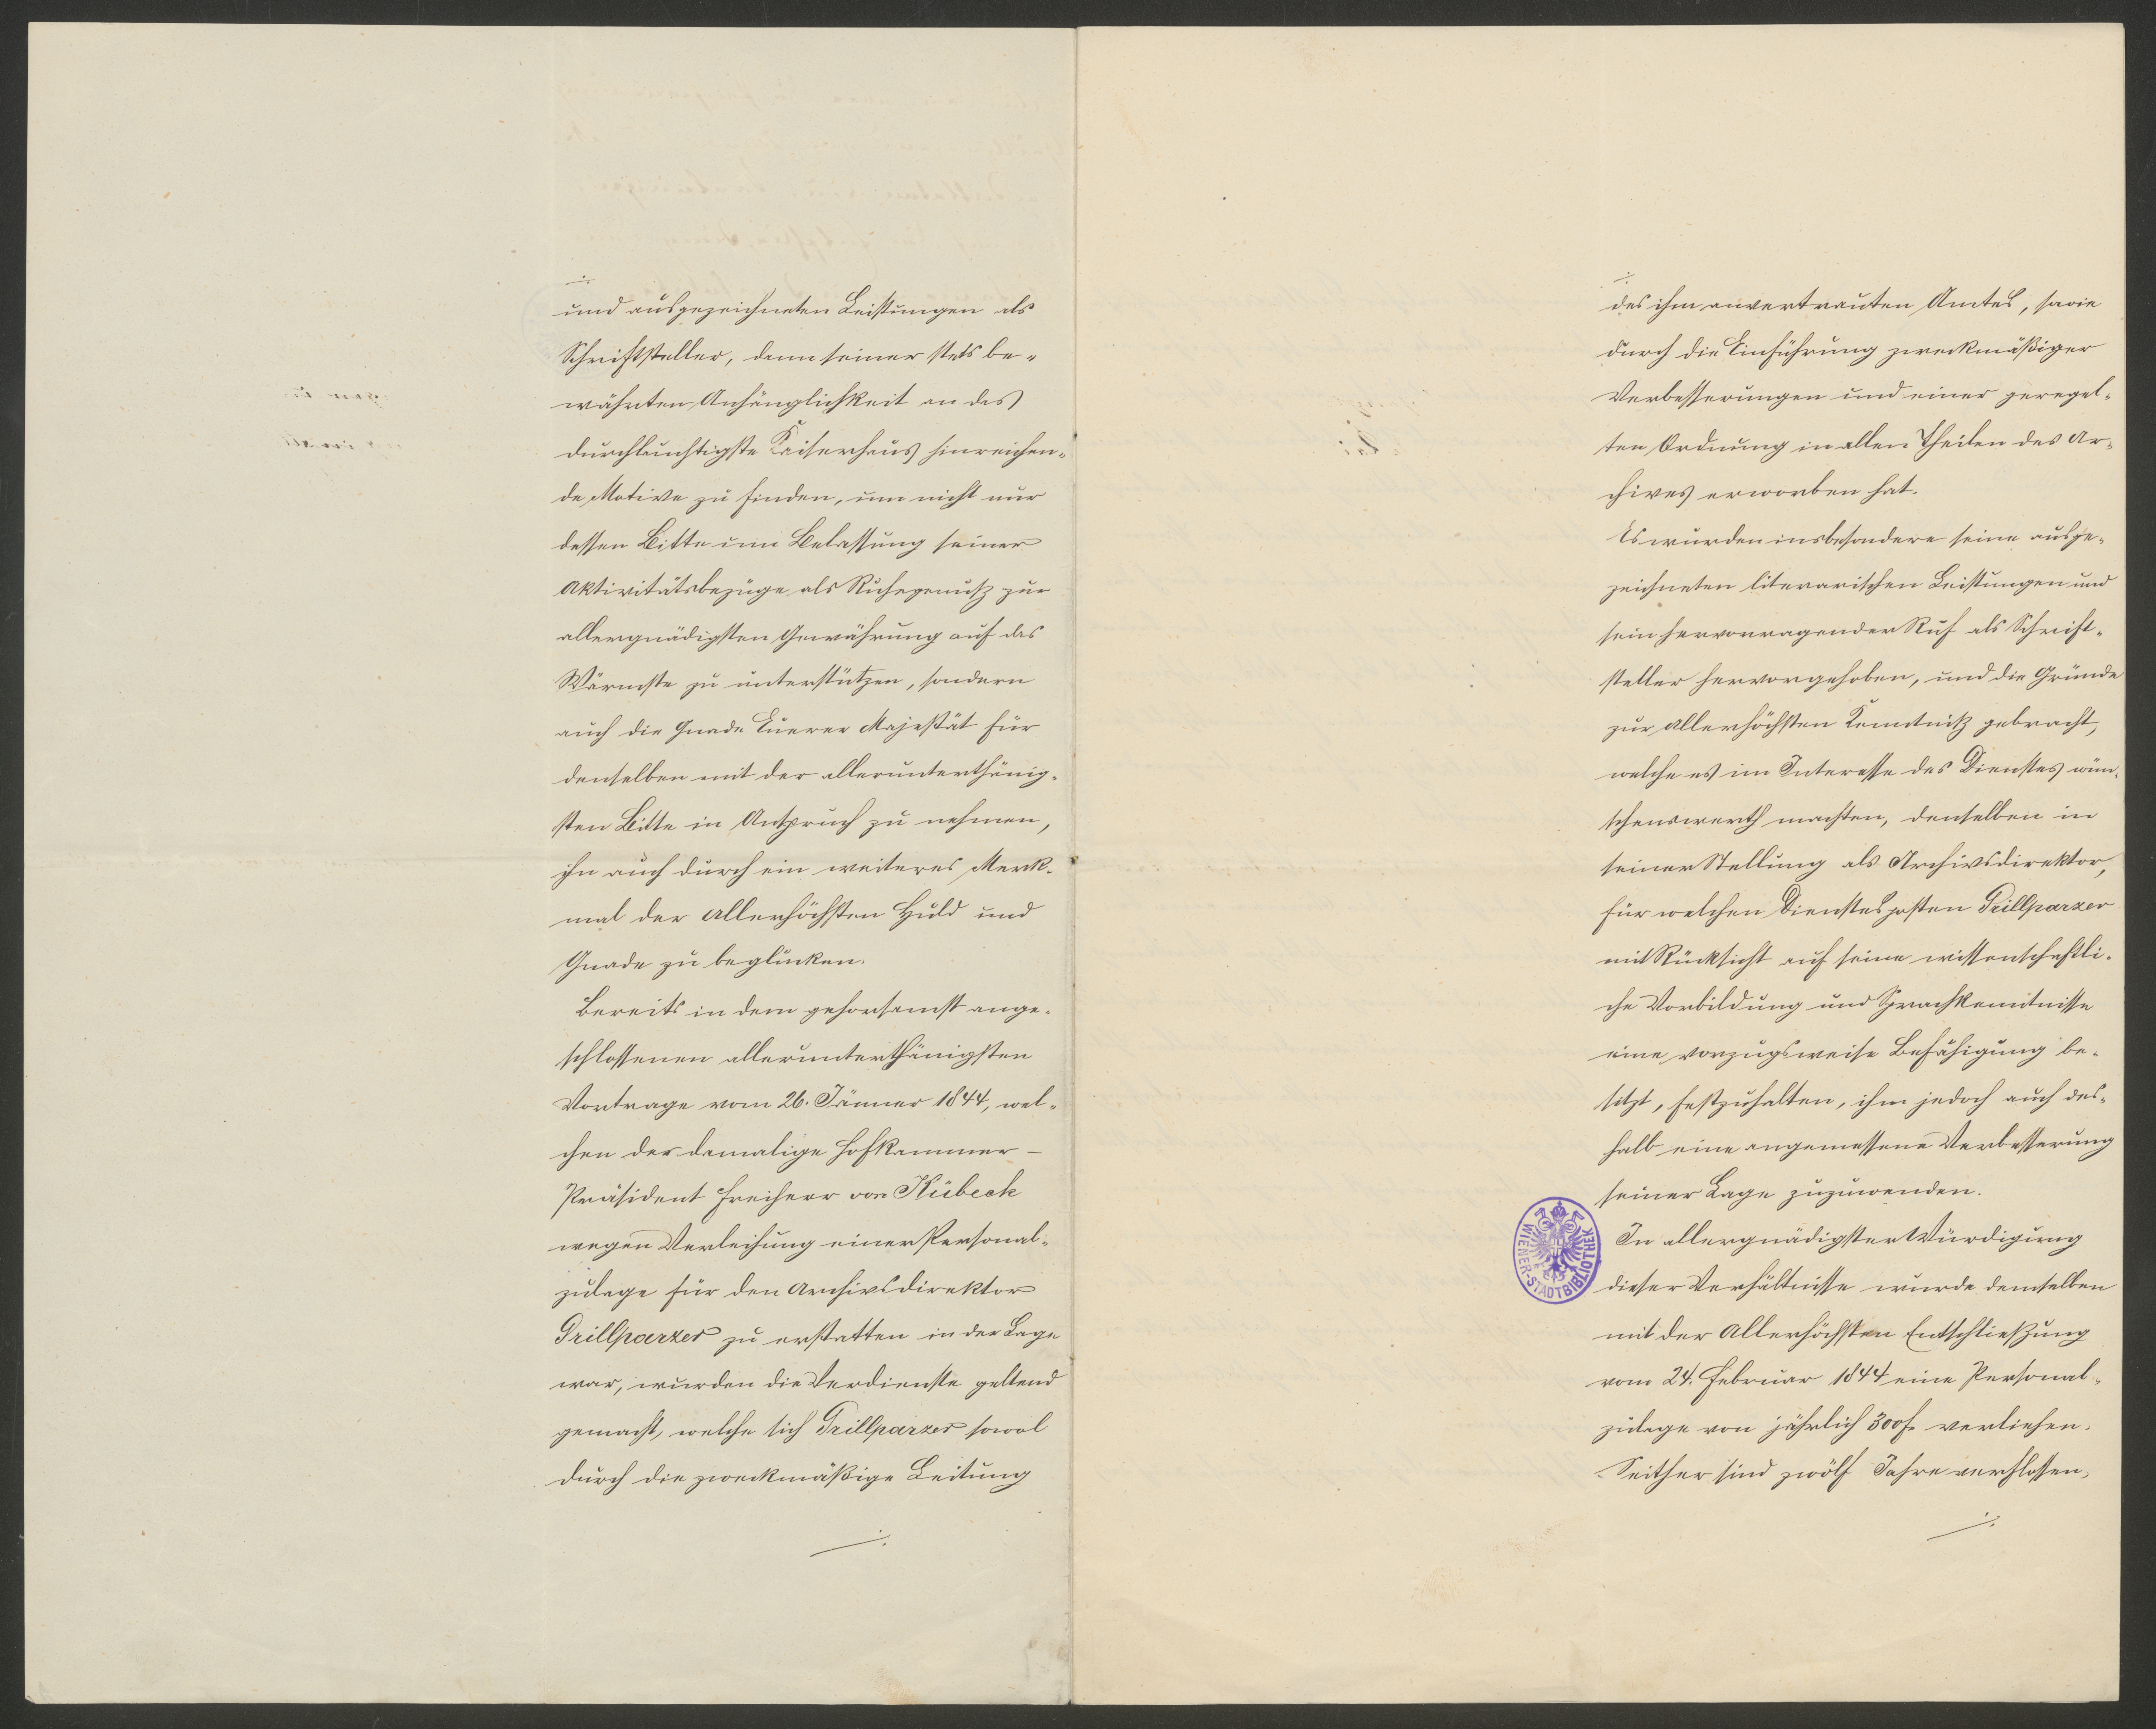 ./.
und ausgezeichneten Leistungen als
Schriftsteller, dann seiner stets be-
währten Anhänglichkeit an das
durchlauchtigste Kaiserhaus hinreichen-
de Motive zu finden, um nicht nur
dessen Bitte um Belassung seiner
Aktivitätsbezüge als Ruhegenuß zur
allergnädigsten Gewährung auf das
Wärmste zu unterstützen, sondern
auch die Gnade Euerer Majestät für
denselben mit der allerunterthänig-
sten Bitte in Anspruch zu nehmen,
ihn auch durch ein weiteres Merk-
mal der Allerhöchsten Huld und
Gnade zu beglücken.
Bereits in dem gehorsamst ange-
schlossenen allerunterthänigsten
Vortrage vom 26. Jänner 1844, wel-
chen der damalige Hofkammer-
Präsident Freiherr von Kübeck
wegen Verleihung einer Personal-
zulage für den Archivsdirektor
Grillparzer zu erstatten in der Lage
war, wurden die Verdienste geltend
gemacht, welche sich Grillparzer sowol
durch die zweckmäßige Leitung
./.
./.
des ihm anvertrauten Amtes, sowie
durch die Einführung zweckmäßiger
Verbesserungen und einer geregel-
ten Ordnung in allen Theilen des Ar-
chives erworben hat.
Es wurden insbesondere seine ausge-
zeichneten literarischen Leistungen und
sein hervorragender Ruf als Schrift-
steller hervorgehoben, und die Gründe
zur Allerhöchsten Kenntniß gebracht,
welche es im Interesse des Dienstes wün-
schenswerth machten, denselben in
seiner Stellung als Archivsdirektor,
für welchen Dienstesposten Grillparzer
mit Rücksicht auf seine wissenschaftli-
che Vorbildung und Sprachkenntnisse
eine vorzugsweise Befähigung be-
sitzt, festzuhalten, ihm jedoch auch des-
halb eine angemessene Verbesserung
seiner Lage zuzuwenden.
In allergnädigster Würdigung
dieser Verhältnisse wurde demselben
mit der Allerhöchsten Entschließung
vom 24. Februar 1844 eine Personal-
zulage von jährlich 300 f. verliehen.
Seither sind zwölf Jahre verflossen,
./.
WIENER-STADTBIBLIOTHEK